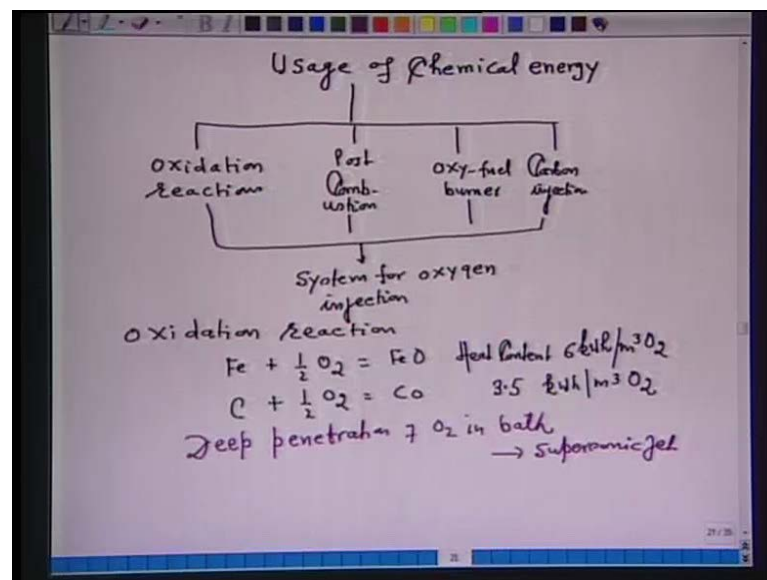 Usage of Chemical energy
Oxidation reaction
Post Comb-ustion
Oxy-fuel burner
Carbon injection
System for oxygen
injection
Oxidation reaction
Fe + 1/2 O2 = FeO Heat Content 6 kWh/m3 O2
C + 1/2 O2 = CO 3.5 kWh/m3 O2
Deep penetration of O2 in bath
→ Supersonic jet
21